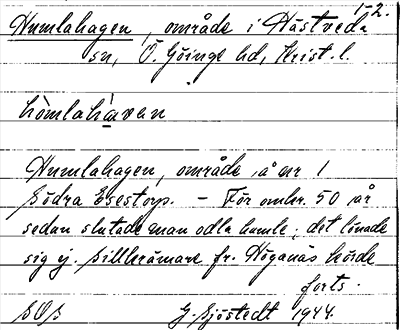 1-2.
Humlahagen, område i Hästveda
sn, Ö. Göinge hd, Krist. l.
hòmlahàven
Humlahagen, område å nr 1
Södra Esestorp. - För omkr. 50 år
sedan slutade man odla humle; det lönade
sig ej. Sillkrämare fr. Höganäs körde
forts.
SOS G. Sjöstedt 1944.